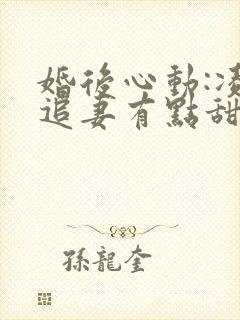 婚後心動:
追妻有點甜
孫龍奎